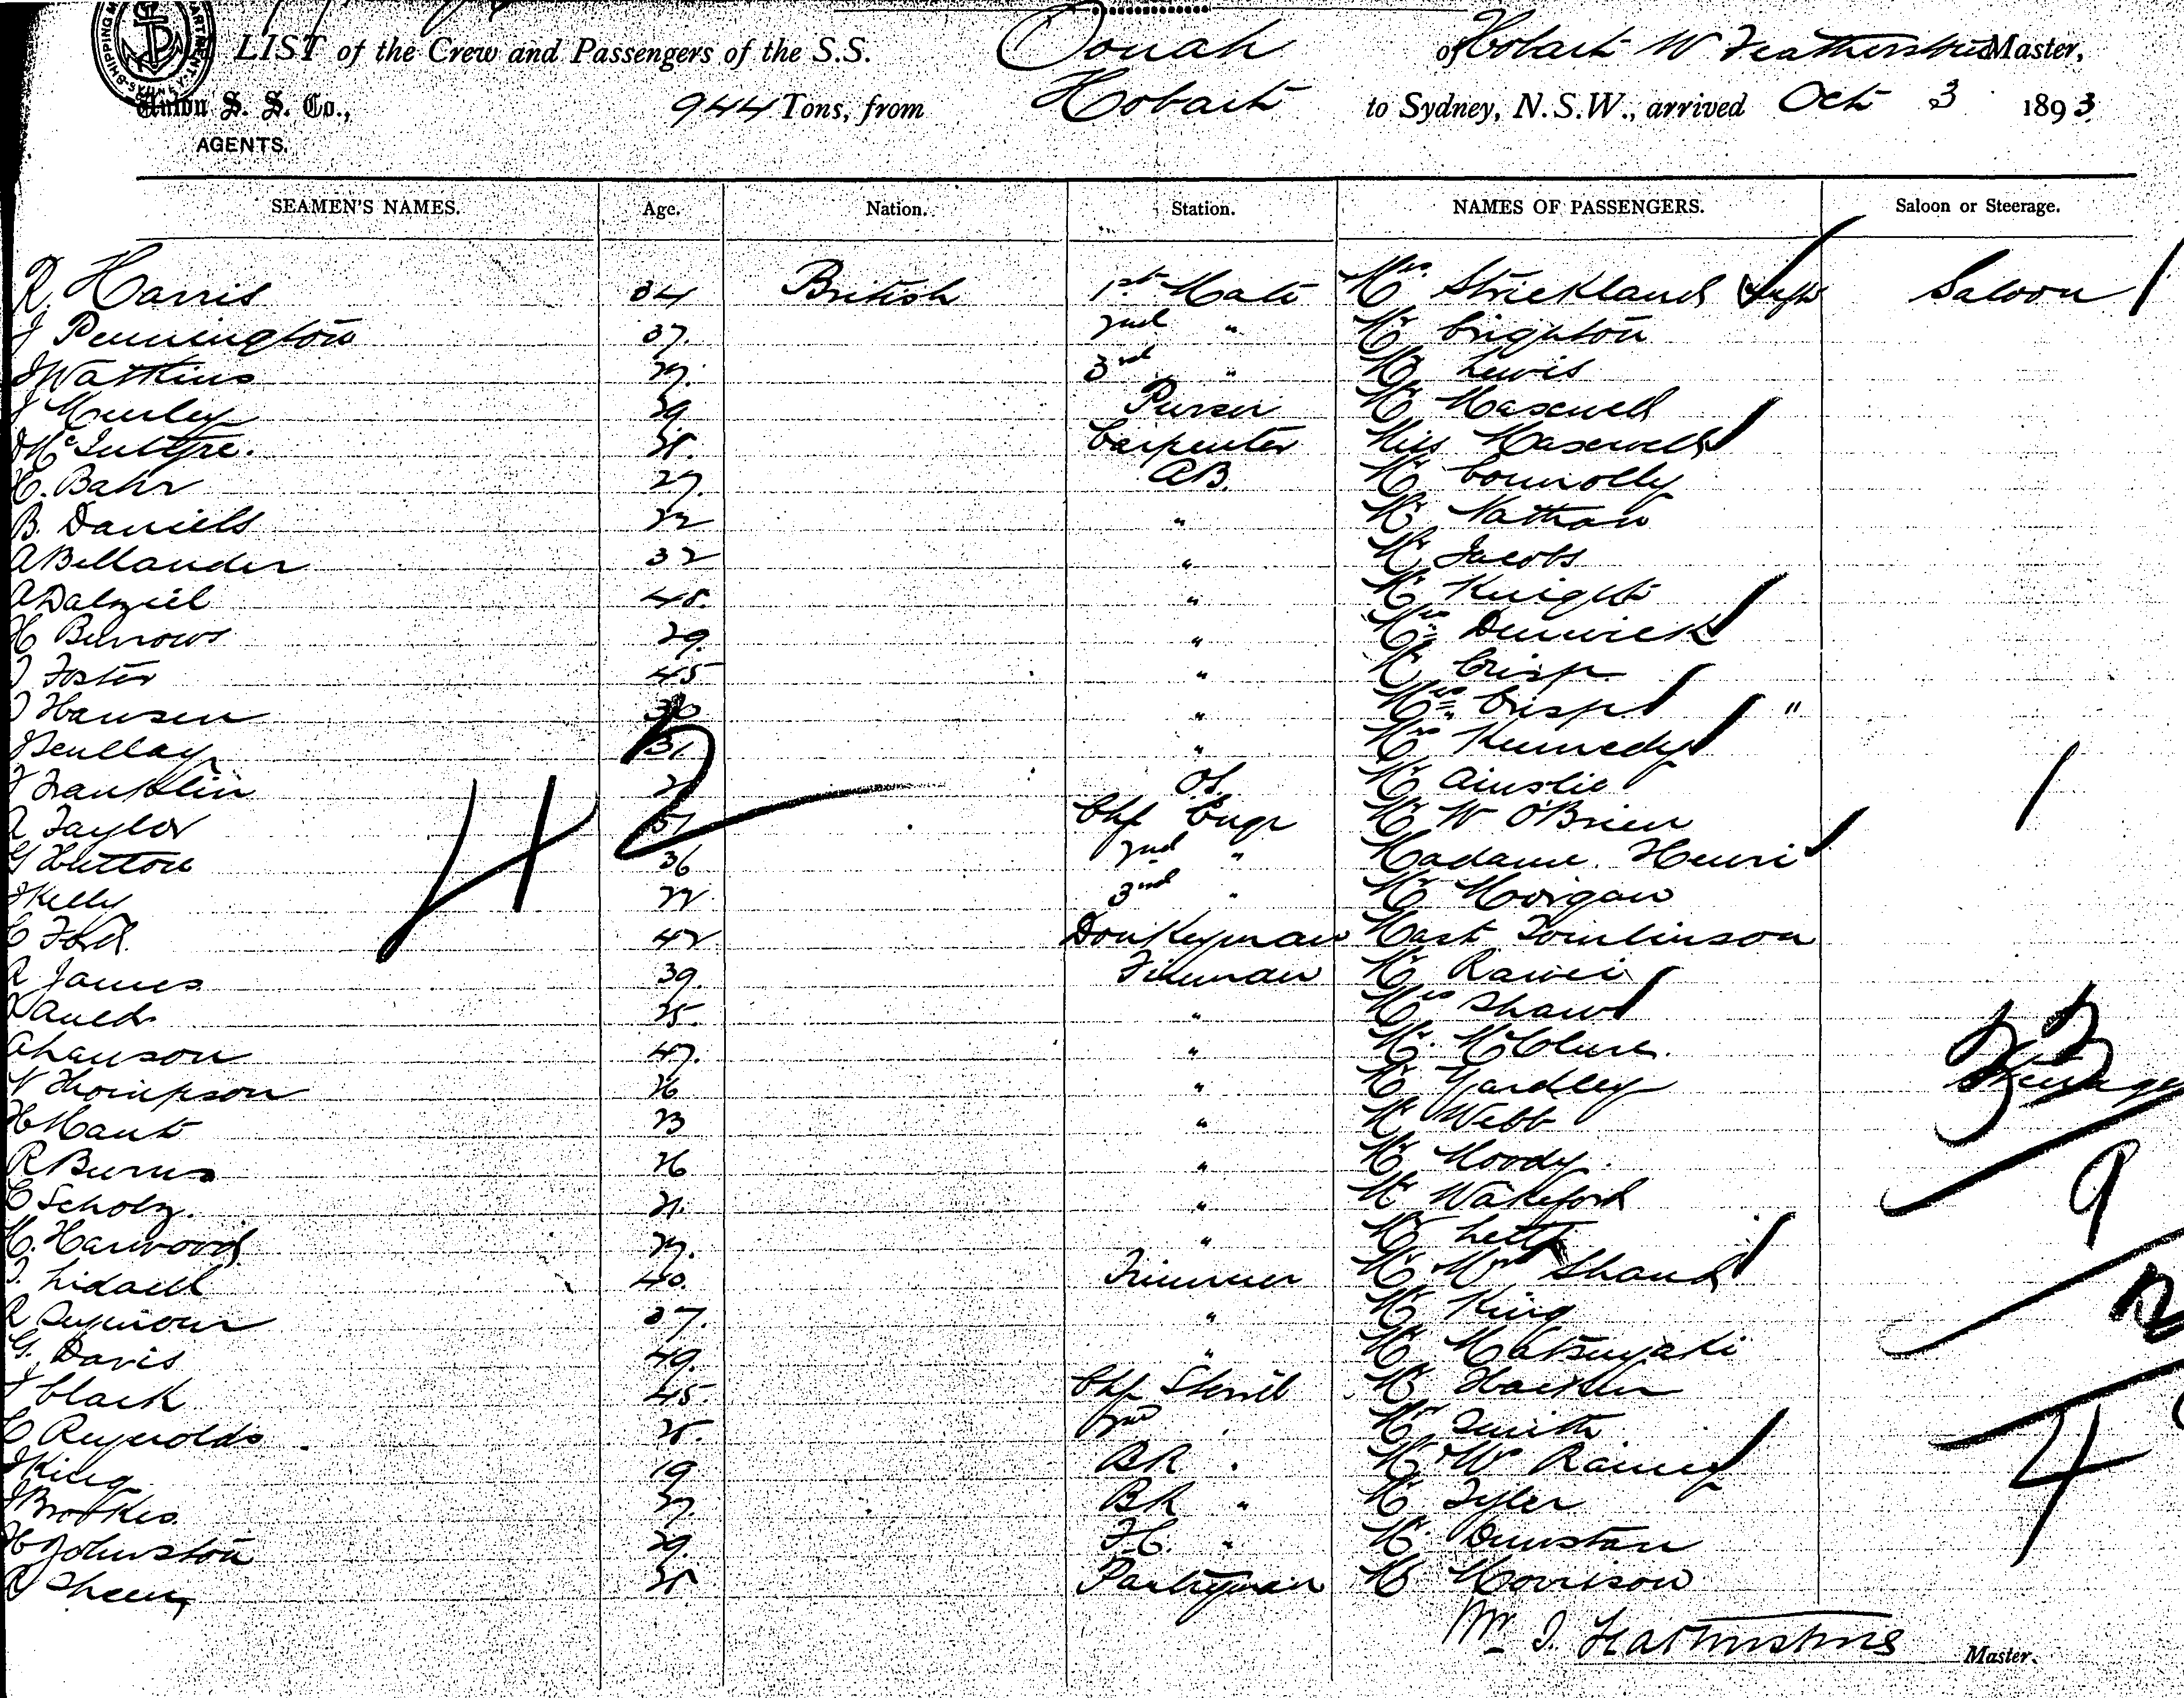 LIST of the Crew and Passengers of the S.S. Oonah of Hobart W Featherstone Master,
Union S. S. Co., AGENTS. 944 Tons, from Hobart to Sydney, N.S.W., arrived Oct 3 1893
SEAMEN'S NAMES. Age. Nation. Station. NAMES OF PASSENGERS. Saloon or Steerage.
R. Harris 34 British 1st Mate Mrs Strickland Saloon
J Pennington 37. 2nd " Mr Crighton
J Watkins 27. 3rd " Mr Lewis
J Murley 29. Purser Mr Maxwell
D McIntyre. 38. Carpenter Miss Maxwell
H. Bahr 27. AB. Mr Connolly
B. Daniels 22 " Mr Nathan
A Bellander 32 " Mr Jacobs
A Dalziel 48. " Mr Knight
H Burrows 29. " Mrs Denwick
J Foster 45 " Mr Crisp.
J Hansen 36 " Mrs Crisp "
J Scullay 31. " Mrs Kennedy
F Franklin O.S. Mr Ainslie
A Taylor 51 Chf Engr Mr W O'Brien
G Hutton 36 2nd " Madame Henri
J Kelly 22 3rd " Mr Morgan
C Ford. 42 Donkeyman Mast Tomlinson
R James 39. Fireman Mr Rawei
Auld 25. " Mrs Shaw
A Hanson 47. " Mr. McClure.
N Thompson 26 " Mr Yardley Steerage
H Mant 23 " Mr Webb
R Burns 26 " Mr Moody.
C Scholz. 21. " Mr Wakeford
H. Harwood 27. " Mr Lett
J. Lidaell 40. Trimmer Mr Mrs Shand
R Seymour 37. " Mr King
G. Davis 49. " Mr Matsuyaki
J Clark 45. Chf Stewd Mr Harker
C Reynolds 25. 2nd Mr Smith
J King 19 BR " Mr W Rainey
J Brookes. 27. BR " Mr Tyler
H Johnston 29. F.C. " Mr Dunstan
R Sheen 35 Pantryman Mr Morrison
Wm J. Featherstone Master.
42
33
9
4